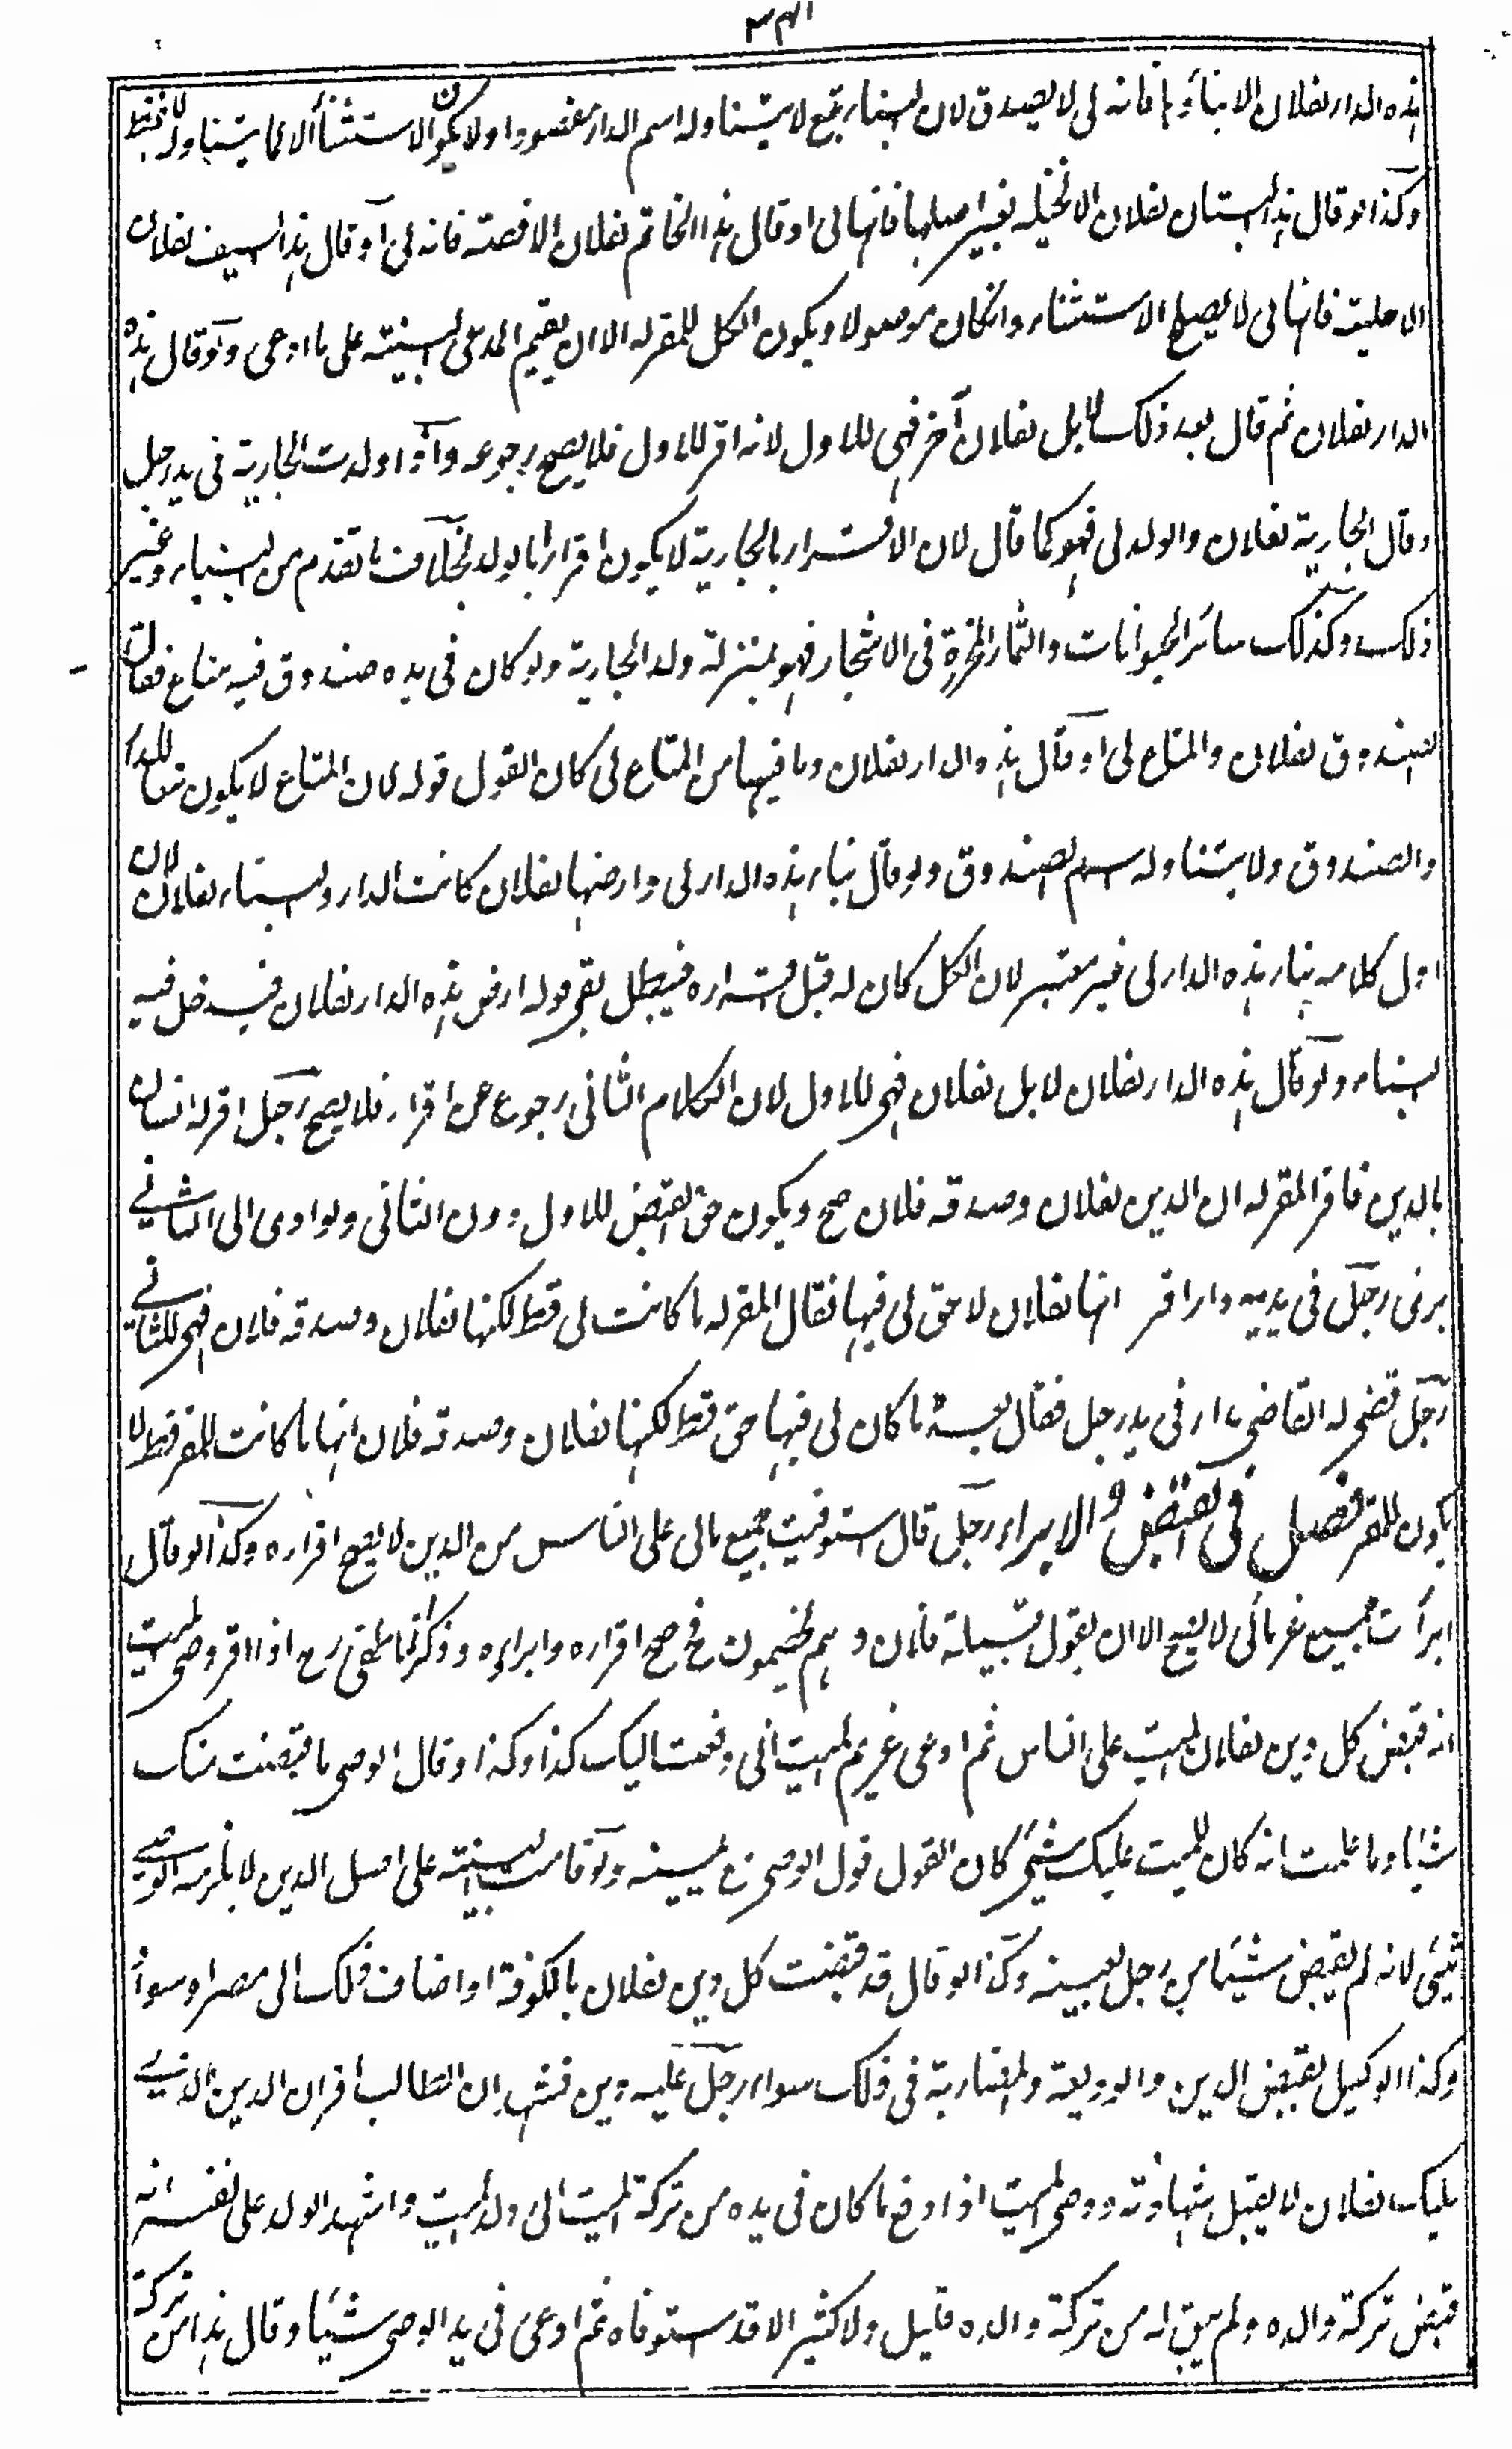 هذه الدار لفلان الا بناؤها فانه لى لا يصدق لان البناء تبع لا يتناوله اسم الدار مقصودا ولا يكون الاستثناء الا لما يتناوله لفظا
وكذا لو قال هذا البستان لفلان الا نخيله بغير اصلها فانها لى او قال هذا الخاتم لفلان الا فصه فانه لى او قال هذا السيف لفلان
الا حليته فانها لى لا يصح الاستثناء وان كان موصولا ويكون الكل للمقر له الا ان يقيم المدعى البينة على ما ادعى ولو قال هذه
الدار لفلان ثم قال بعد ذلك لا بل لفلان آخر فهى للاول لانه اقر للاول فلا يصح رجوعه واذا ولدت الجارية فى يد رجل
وقال الجارية لفلان والولد لى فهو كما قال لان الاقرار بالجارية لا يكون اقرارا بالولد بخلاف ما تقدم من البناء وغير
ذلك وكذلك سائر الحيوانات والثمار المحرزة فى الاشجار فهو بمنزلة ولد الجارية ولو كان فى يده صندوق فيه متاع فقال
الصندوق لفلان والمتاع لى او قال هذه الدار لفلان وما فيها من المتاع لى كان القول قوله لان المتاع لا يكون تبعا للدار
والصندوق ولا يتناوله اسم الصندوق ولو قال بناء هذه الدار لى وارضها لفلان كانت الدار والبناء لفلان لان
اول كلامه بناء هذه الدار لى غير معتبر لان الكل كان له قبل اقراره فيبطل بقى قوله ارض هذه الدار لفلان فيدخل فيه
البناء ولو قال هذه الدار لفلان لا بل لفلان فهى للاول لان الكلام الثانى رجوع عن اقراره فلا يصح رجل اقر له انسان
بالدين فاقر المقر له ان الدين لفلان وصدقه فلان صح ويكون حق القبض للاول دون الثانى ولو ادى الى الثانى
برئ رجل فى يديه دار اقر انها لفلان لا حق لى فيها فقال المقر له ما كانت لى قط لكنها لفلان وصدقه فلان فهى للثانى
رجل قضى له القاضى بدار فى يد رجل فقال بعده ما كان لى فيها حق قط لكنها لفلان وصدقه فلان انها ما كانت للمقر قط لا
يكون للمقر فصل فى القبض و الابراء رجل قال استوفيت جميع مالى على الناس من الدين لا يصح اقراره وكذا لو قال
ابرأت جميع غرمائى لا يصح الا ان يقول قبيلة فلان وهم يحصون فح صح اقراره وابراءه وذكر الناطفى رح اذا اقر وصى الميت
انه قبض كل دين لفلان الميت على الناس ثم ادعى غريم الميت انى دفعت اليك كذا وكذا وقال الوصى ما قبضت منك
شيئا وما علمت انه كان للميت عليك شئ كان القول قول الوصى مع يمينه ولو قامت البينة على اصل الدين لا يلزمه الوصى
شئ لانه لم يقبض شيئا من رجل بعينه وكذا لو قال قد قبضت كل دين لفلان بالكوفة او اضاف ذلك الى مصر او سواد
وكذا الوكيل بقبض الدين والوديعة والمضاربة فى ذلك سواء رجل عليه دين فشهد ان الطالب اقر ان الدين الذى
عليك لفلان لا يقبل شهادته ووصى الميت اذا دفع ما كان فى يده من تركة الميت الى ولد الميت واشهد الولد على نفسه انه
قبض تركة والده ولم يبق له من تركة والده قليل ولا كثير الا قد استوفاه ثم ادعى فى يد الوصى شيئا وقال هذا من تركة